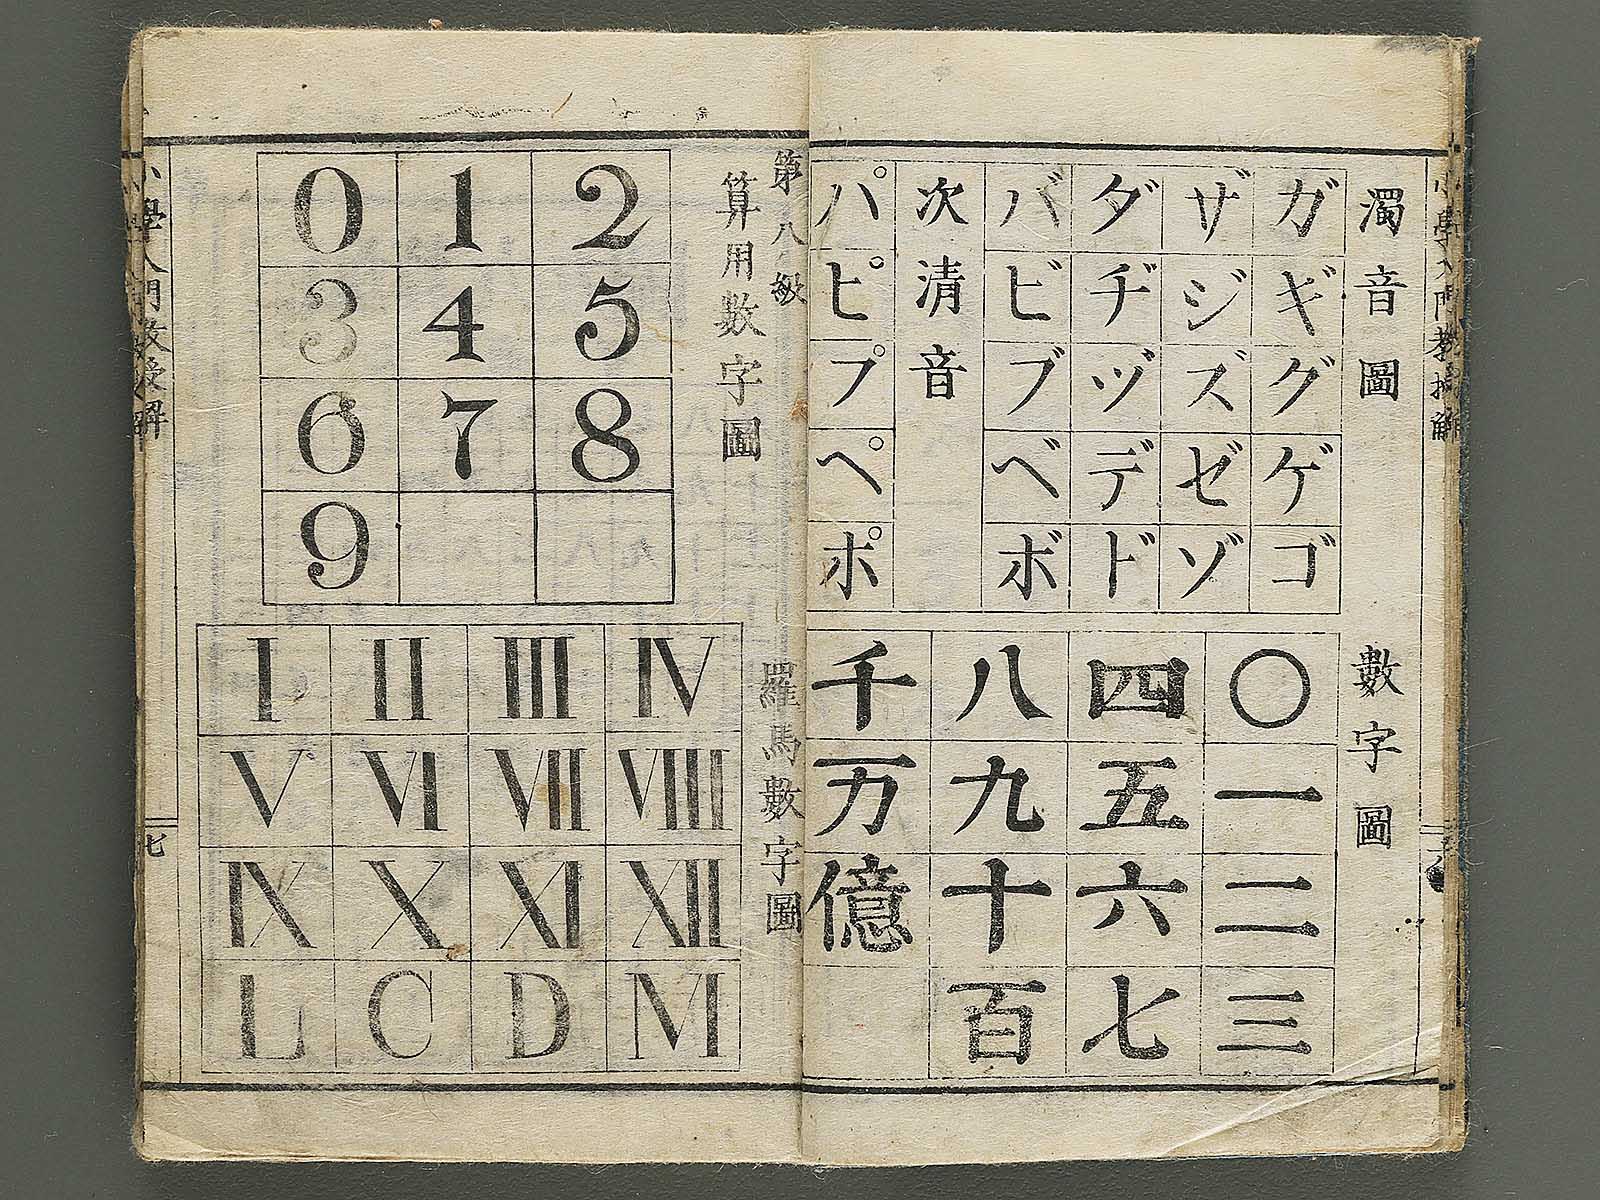 濁音圖
ガギグゲゴ
ザジズゼゾ
ダヂヅデド
バビブベボ
次清音
パピプペポ
數字圖
〇一二三
四五六七
八九十百
千万億
第八級
算用數字圖
0 1 2
3 4 5
6 7 8
9
羅馬數字圖
I II III IV
V VI VII VIII
IX X XI XII
L C D M
小學入門教授解
七